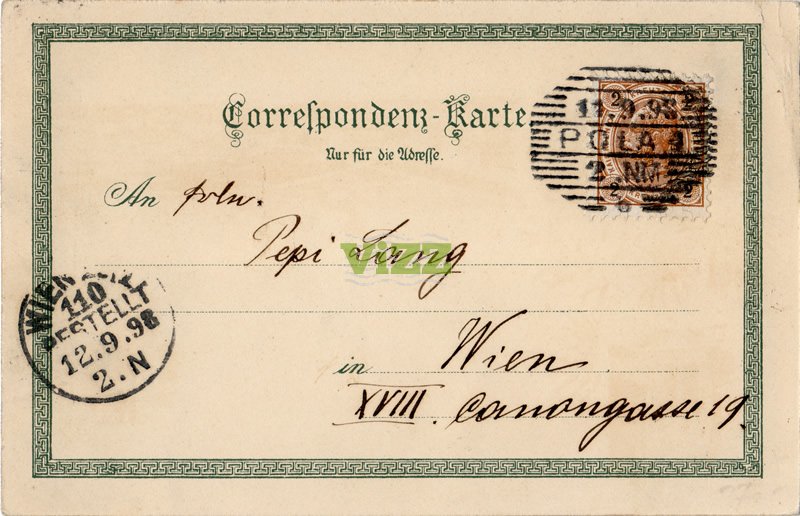 Correspondenz-Karte.
Nur für die Adresse.
2 2
11.9.98
POLA
2.NM
2 2
An
Pepi Lang
VIZZ
WIEN
110
BESTELLT
12.9.98
2.N
in Wien
XVIII. Canongasse 19.